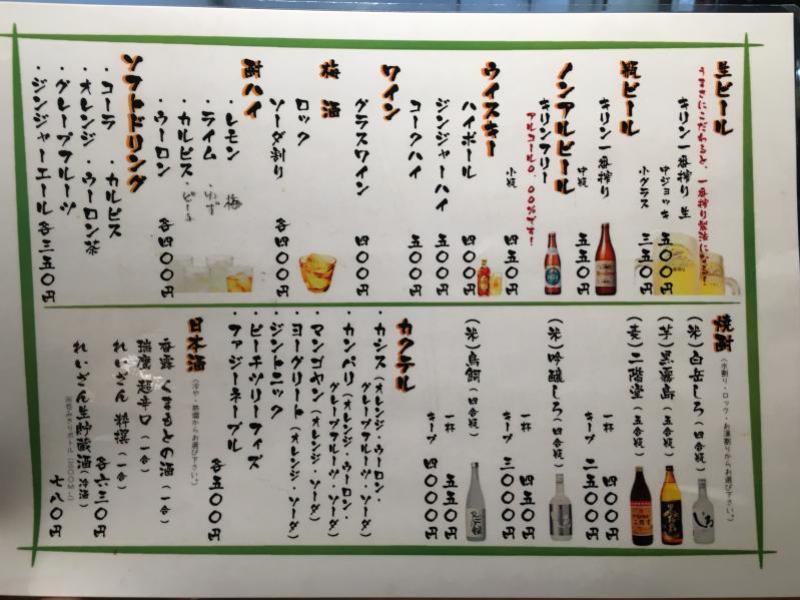 生ビール
うまさにこだわると、一番搾り製法になる!
キリン一番搾り 生
中ジョッキ 五〇〇円
小グラス 三五〇円
瓶ビール
キリン一番搾り
中瓶 五五〇円
ノンアルビール
キリンフリー
アルコール0.00%です!
小瓶 四五〇円
ウイスキー
ハイボール 四〇〇円
ジンジャーハイ 五〇〇円
コークハイ 五〇〇円
ワイン
グラスワイン 四〇〇円
梅酒
ロック
ソーダ割り 各四〇〇円
酎ハイ
・レモン 梅
・ライム ・ゆず
・カルピス ・ピーチ
・ウーロン 各四〇〇円
ソフトドリンク
・コーラ ・カルピス
・オレンジ ・ウーロン茶
・グレープフルーツ
・ジンジャーエール 各三五〇円
焼酎
(水割り・ロック・お湯割りからお選び下さい。)
(米)白岳しろ(四合瓶)
(芋)黒霧島(五合瓶)
(麦)二階堂(五合瓶)
一杯 四〇〇円
キープ 二五〇〇円
(米)吟醸しろ(四合瓶)
一杯 四五〇円
キープ 三〇〇〇円
(米)鳥飼(四合瓶)
一杯 五五〇円
キープ 四〇〇〇円
カクテル
・カシス(オレンジ・ウーロン・
グレープフルーツ・ソーダ)
・カンパリ(オレンジ・ウーロン・
グレープフルーツ・ソーダ)
・マンゴヤン(オレンジ・ソーダ)
・ヨーグリート(オレンジ・ソーダ)
・ジントニック
・ピーチツリーフィズ
・ファジーネーブル
各五〇〇円
日本酒
(冷や・熱燗からお選び下さい。)
香露 くまもとの酒(一合)
瑞鷹 超辛口(一合)
れいざん 粋撰(一合)
各六三〇円
れいざん生貯蔵酒(冷酒)
七八〇円